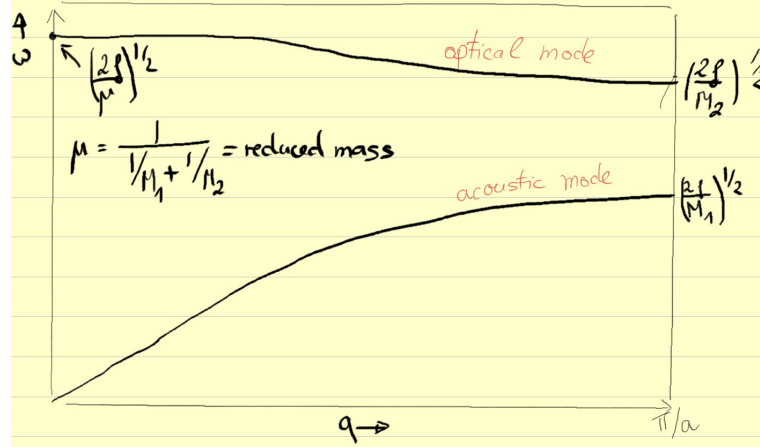 ω
(2f/μ)^1/2
optical mode
(2f/M_2)^1/2
μ = 1/(1/M_1 + 1/M_2) = reduced mass
acoustic mode
(2f/M_1)^1/2
q →
π/a